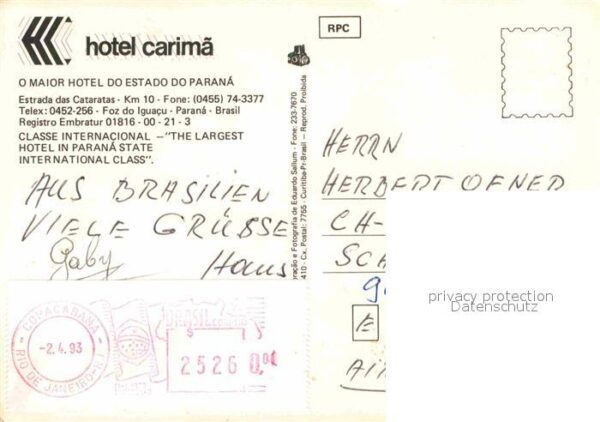 hotel carimã
O MAIOR HOTEL DO ESTADO DO PARANÁ
Estrada das Cataratas - Km 10 - Fone: (0455) 74-3377
Telex: 0452-256 - Foz do Iguaçu - Paraná - Brasil
Registro Embratur 01816 - 00 - 21 - 3
CLASSE INTERNACIONAL – "THE LARGEST
HOTEL IN PARANÁ STATE
INTERNATIONAL CLASS".
AUS BRASILIEN
VIELE GRÜSSE
Gaby Hans
COPACABANA
-2.4.93
RIO DE JANEIRO-RJ
BRASIL
$
2526 0,00
ração e Fotografia de Eduardo Sallum - Fone: 233-7670
410 - Cx. Postal: 7755 - Curitiba-Pr-Brasil - Reprod. Proibida
RPC
HERRN
HERBERT OFNER
CH-
SCH
E
privacy protection
Datenschutz